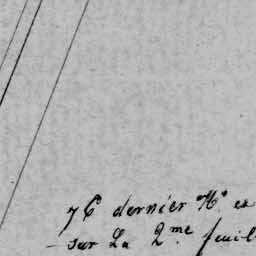 76 dernier N° es
sur La 2.me feuil